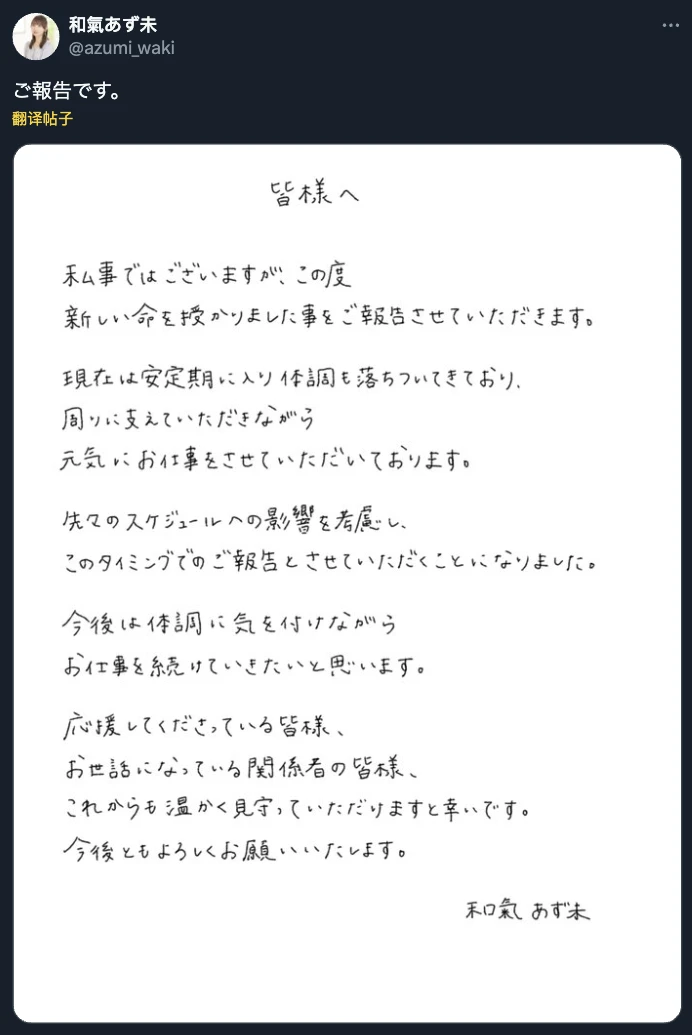 和氣あず未
@azumi_waki
ご報告です。
翻译帖子
皆様へ
私事ではございますが、この度
新しい命を授かりました事をご報告させていただきます。
現在は安定期に入り体調も落ちついてきており、
周りに支えていただきながら
元気にお仕事をさせていただいております。
先々のスケジュールへの影響を考慮し、
このタイミングでのご報告とさせていただくことになりました。
今後は体調に気を付けながら
お仕事を続けていきたいと思います。
応援してくださっている皆様、
お世話になっている関係者の皆様、
これからも温かく見守っていただけますと幸いです。
今後ともよろしくお願いいたします。
和氣 あず未